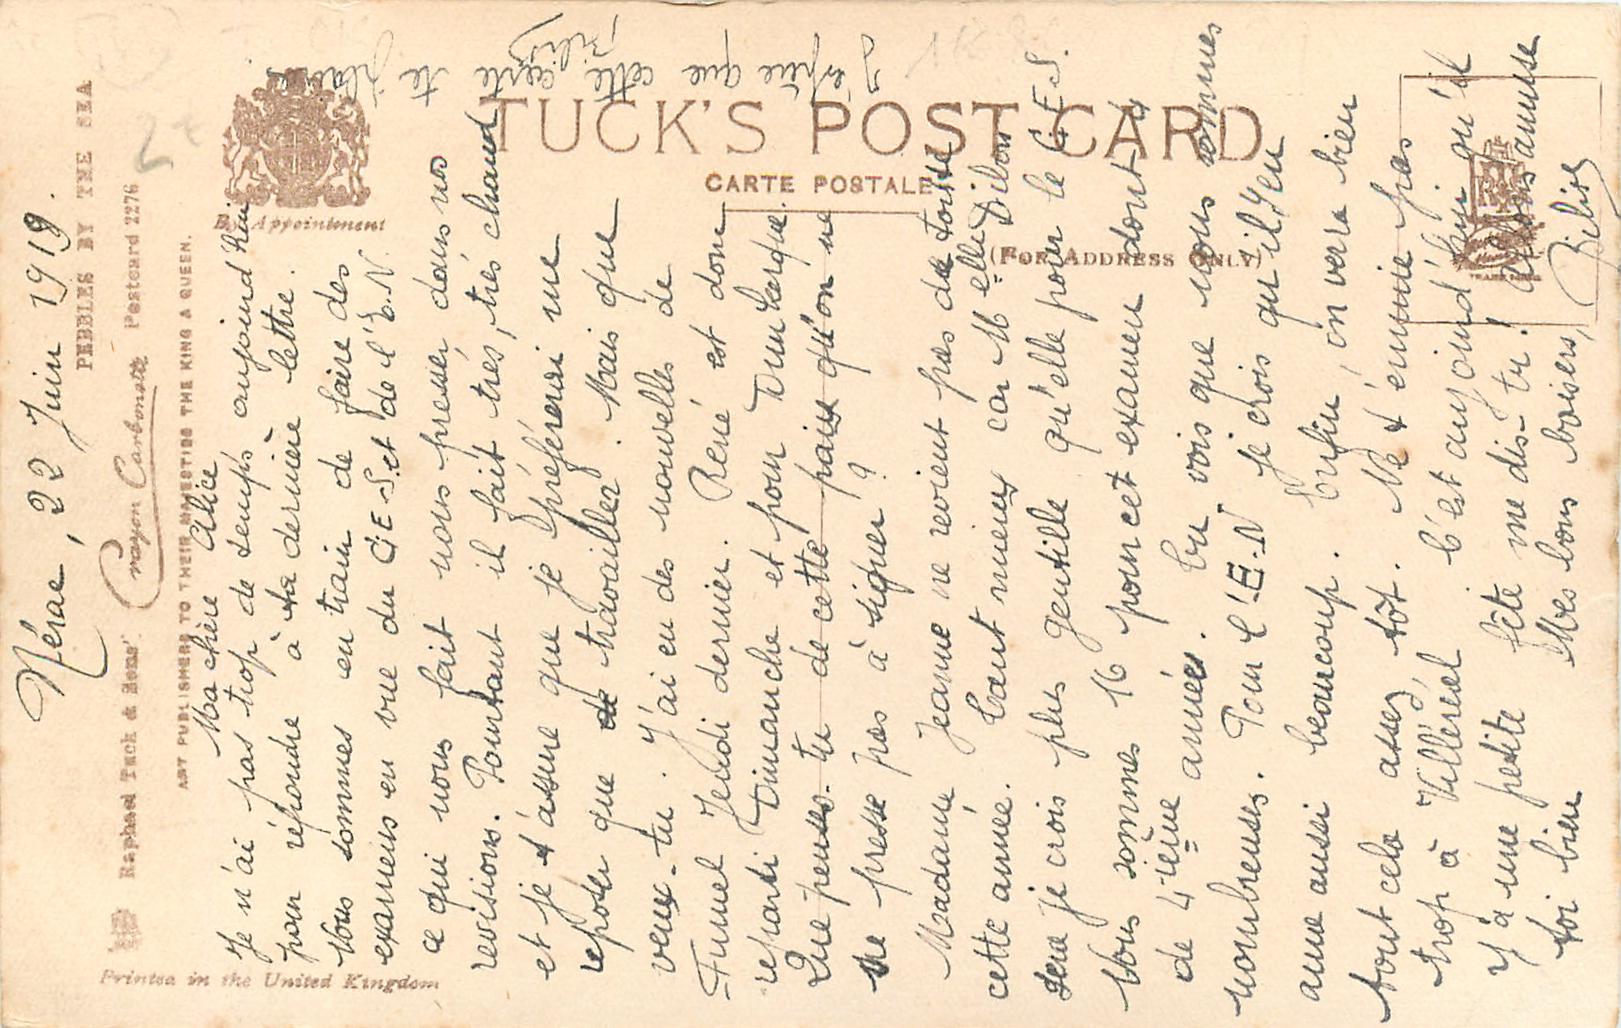 PEBBLES BY THE SEA
Raphael Tuck & Sons' Crayon Carbonette Postcard 2276
ART PUBLISHERS TO THEIR MAJESTIES THE KING & QUEEN.
Printed in the United Kingdom
By Appointment
TUCK'S POST CARD
CARTE POSTALE
(FOR ADDRESS ONLY)
Nérac, 22 Juin 1919.
Ma chère Alice
Je n'ai pas trop de temps aujourd'hui
pour répondre à ta dernière lettre.
Nous sommes en train de faire des
examens en vue du C.E.S. et de l'E.N.
ce qui nous fait nous presser dans nos
revisions. Pourtant il fait très, très chaud
et je t'assure que je préfererai me
reposer que de travailler. Mais que
veux-tu. J'ai eu des nouvelles de
Fumel Jeudi dernier. René est donc
reparti Dimanche et pour Dunkerque.
Que penses-tu de cette paix qu'on ne
se presse pas à signer?
Madame Jeanne ne revient pas de toute
cette année. Tant mieux car Melle Dilon
sera je crois plus gentille qu'elle pour le C.E.S.
Nous sommes 16 pour cet examen dont 4
de 4ième année. Tu vois que nous sommes
nombreuses. Pour l'E.N je crois qu'il y en
aura aussi beaucoup. Enfin, on verra bien
tout cela assez tôt. Ne t'ennuie pas
trop à Villeréal C'est aujourd'hui qu'il
y a une petite fête me dis-tu! Alors amuse
toi bien Mes bons baisers,
J'espère que cette carte te plaira.